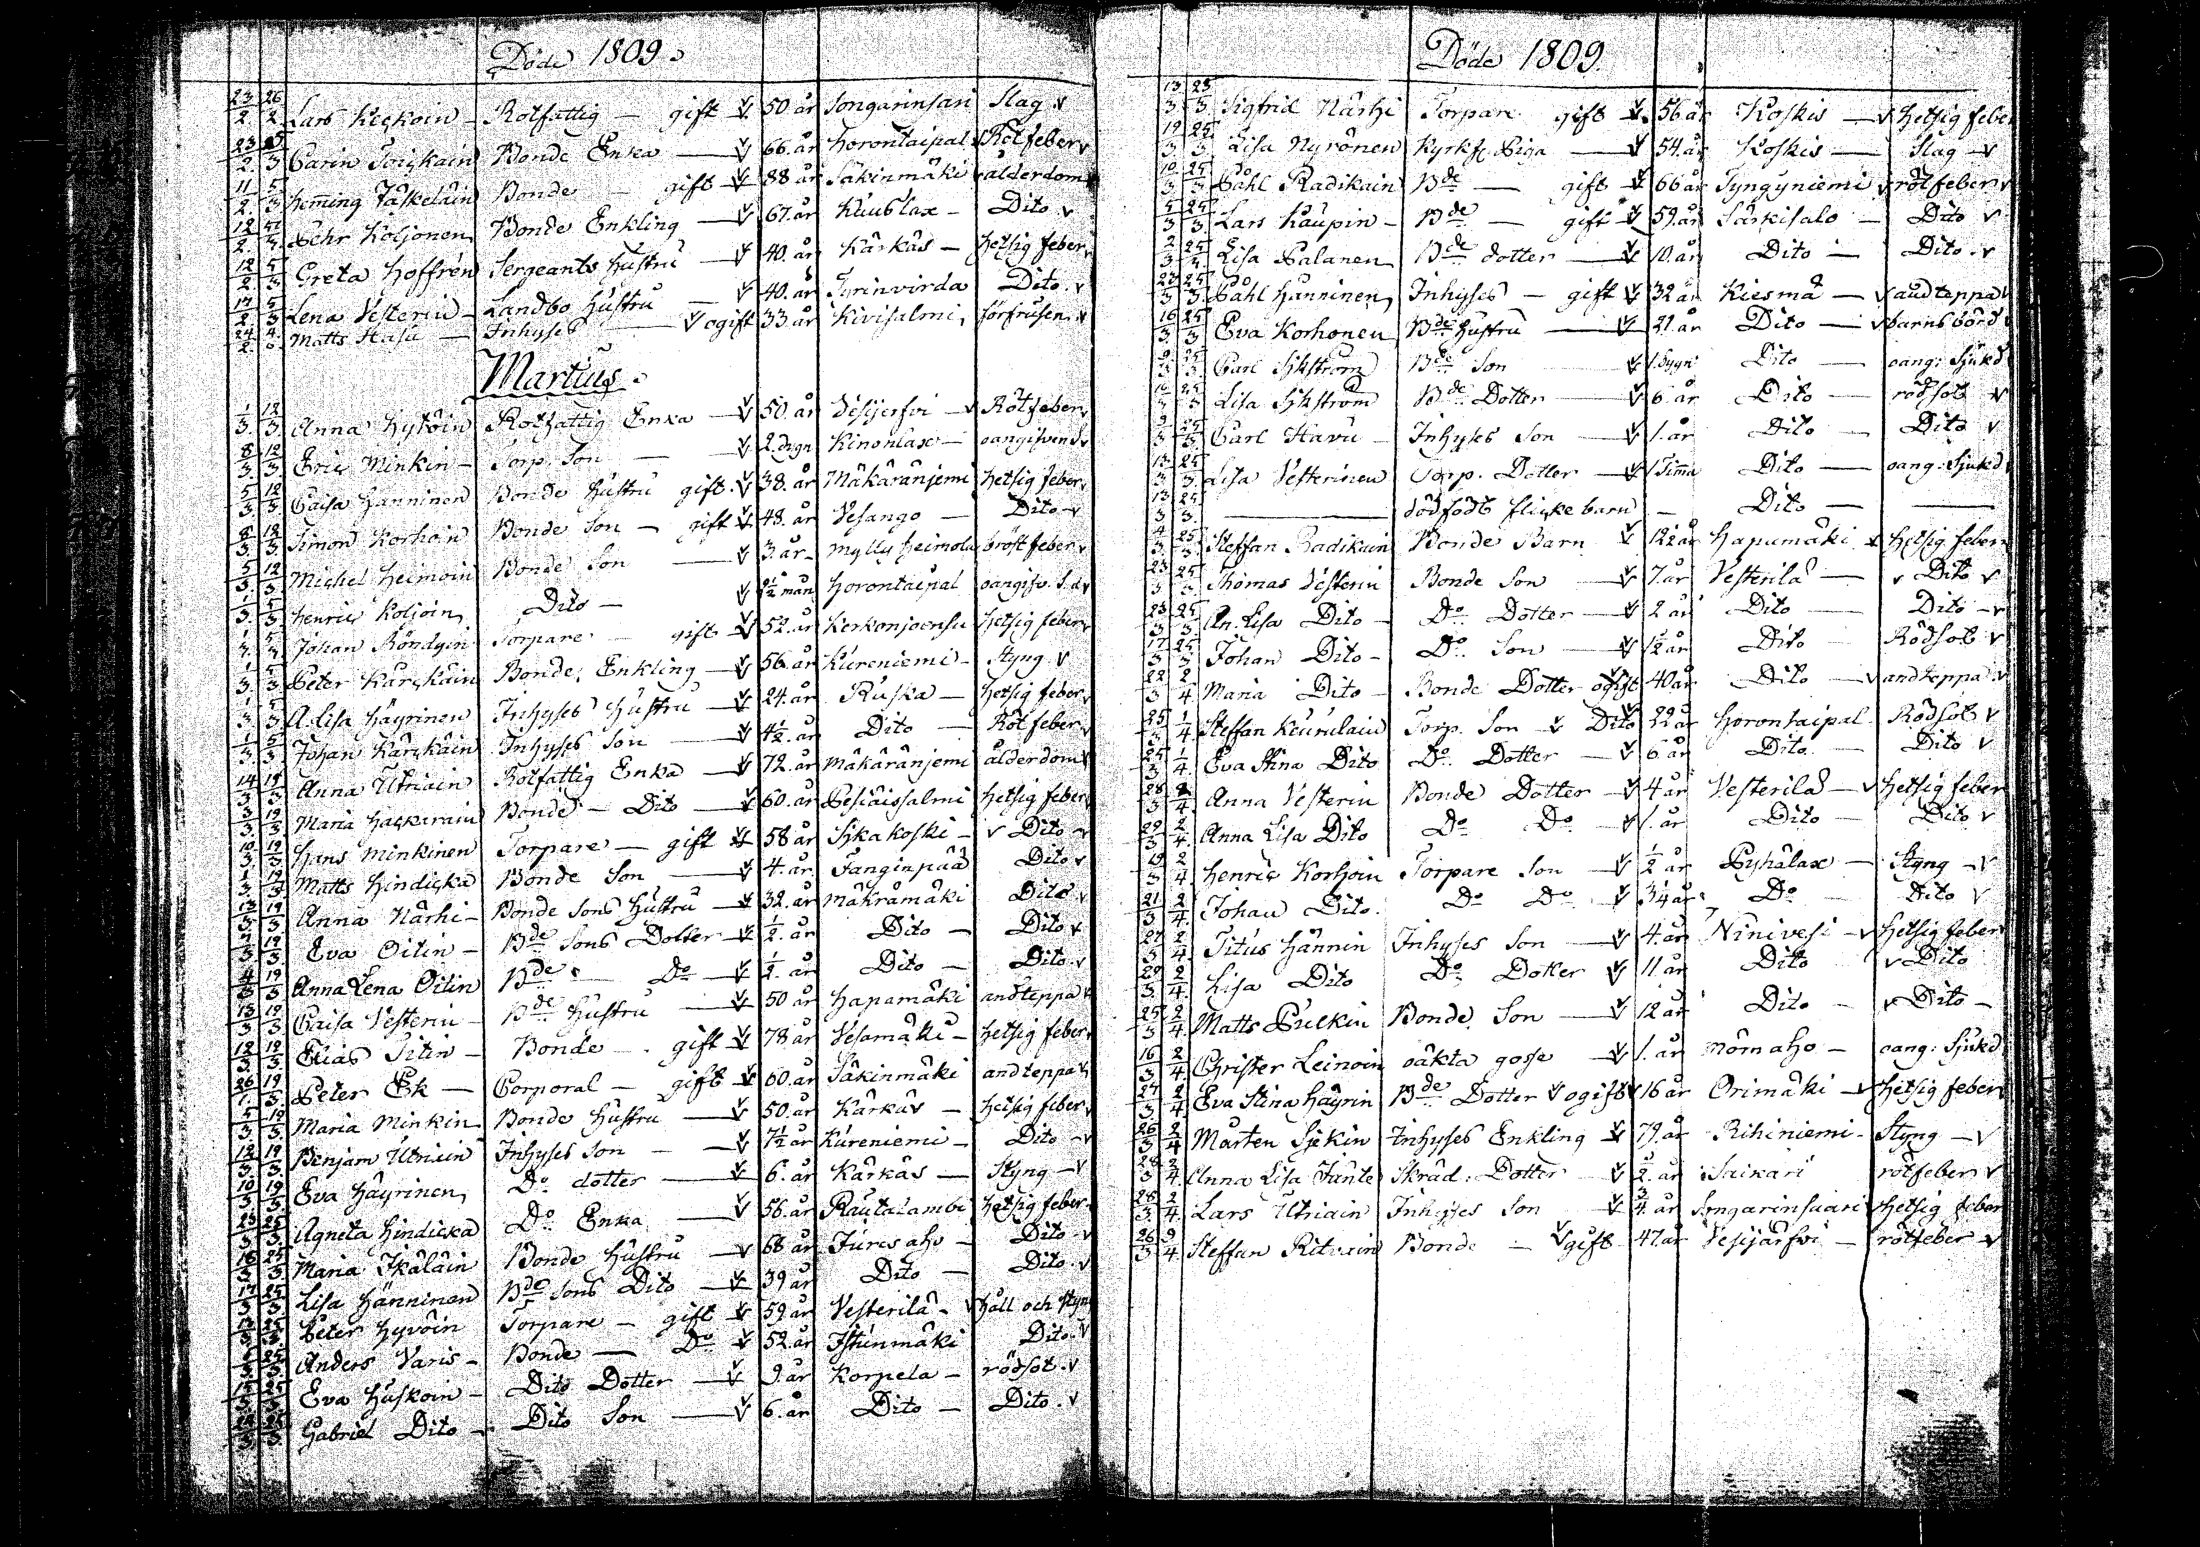 Döde 1809.
23/2 26/2 Lars Keckoin - Rotfattig - gift 50 år Songarinsari Slag
23/2 5/3 Carin Toiskain Bonde Enka 66. år Horontaipal Rötfeber
11/2 5/3 Hemming Jäskeläin Bonde - gift 88 år Säkinmäki ålderdom
12/2 5/3 Pehr Koljonen Bonde Enkling 67. år Kuuslax - Dito
12/2 5/3 Greta Hoffrén Sergeants Hustru 40. år Kärkäs - Hetsig feber
17/2 5/3 Lena Vesterin - Landbo Hustru 40. år Tyrinvirda Dito
24/2 Matts Hasu - Inhyses ogift 33 år Kivisalmi, förfrusen
Martius.
1/3 12/3 Anna Hytöin Rotfattig Enka 50. år Vesijerfvi - Rötfeber
8/3 12/3 Eric Minkin - Torp. Son - 2. dygn Kinonlax - oangifven S
5/3 12/3 Caisa Hänninen Bonde Hustru gift 38. år Mäkäränjemi hetsig feber
8/3 12/3 Simon Korhoin Bonde Son - gift 48. år Vesango - Dito
5/3 12/3 Michel Heimoin Bonde Son 3 år Mylly Heimola bröstfeber
1/3 5/3 Henric Koljoin Dito - 2½ mån Horontaipal oangifv. S.d
1/3 5/3 Johan Röndyin Torpare - gift 52. år Kerkonjoensu Hetsig feber
1/3 5/3 Peter Kärckäin Bonde Enkling 56. år Kureniemi - Styng
1/3 5/3 A. Lisa Häyrinen Inhyses Hustru 24. år Ruska - hetsig feber
1/3 5/3 Johan Kärckäin Inhyses Son 4½. år Dito - Rötfeber
14/3 19/3 Anna Utriain Rotfattig Enka 72. år Mäkäränjemi ålderdom
3/3 19/3 Maria Hackarain Bonde - Dito 60. år Pesiäissalmi hetsig feber
10/3 19/3 Hans Minkinen Torpare - gift 58 år Sikakoski - Dito
1/3 19/3 Matts Hindicka Bonde Son 4. år Tanginpää Dito
13/3 19/3 Anna Närhi - Bonde Sons Hustru 32. år Mäkrämäki Dito
7/3 19/3 Eva Oitin - Bde Sons Dotter ½. år Dito - Dito
4/3 19/3 Anna Lena Oitin Bde Do ½. år Dito - Dito
13/3 19/3 Caisa Vesterin - Bde Hustru 50 år Hapamäki andteppa
12/3 19/3 Elias Sitin - Bonde - gift 78 år Vesamäki - hetsig feber
26/1 19/3 Peter Ek - Corporal - gift 60. år Säkinmäki andteppa
5/3 19/3 Maria Minkin Bonde Hustru 50. år Kärkäs - hetsig feber
12/3 19/3 Benjam Utriain Inhyses Son - 7½ år Kureniemi - Dito
10/3 19/3 Eva Häyrinen Do dotter 6. år Kärkäs - Styng
23/3 25/3 Agneta Hindicka Do Enka 56. år Rautalambi hetsig feber
16/3 25/3 Maria Ikäläin Bonde Hustru 68 år Juresaho - Dito
17/3 25/3 Lisa Hänninen Bde Sons Dito 39 år Dito - Dito
13/3 25/3 Peter Hyvöin Torpare - gift 59 år Vesterilä - Håll och styn
25/3 Anders Varis - Bonde - Do 52. år Istunmäki Dito
15/3 25/3 Eva Huskoin - Dito Dotter 9. år Korpela - rödsot
25/3 Gabriel Dito - Dito Son 6. år Dito - Dito
Döde 1809.
13/3 25/3 Sigfrid Närhi Torpare gift 56 år Koskis - Hetsig feber
19/3 25/3 Lisa Nyrönen Kyrkf. Piga 54. år Koskis - Slag
10/3 25/3 Påhl Radikain Bde - gift 66 år Tyngyniemi rötfeber
5/3 25/3 Lars Kaupin - Bde - gift 59. år Särkisalo - Dito
2/3 25/3 Lisa Palanen Bde dotter 10. år Dito - Dito
23/3 25/3 Påhl Hänninen Inhyses - gift 32 år Kiesmä - andteppa
16/3 25/3 Eva Korhonen Bde Hustru 21. år Dito - barnsbörd
9/3 25/3 Carl Sjkström Bde Son 1. dygn Dito - oang: Sjukd
16/3 25/3 Lisa Sjkström Bde Dotter 6. år Dito - rödsot
9/3 25/3 Carl Havu - Inhyses Son 1. år Dito - Dito
13/3 25/3 Lisa Vesterinen Torp. Dotter 1 Timma Dito - oang: Sjukd
13/3 25/3 dödfödt flickebarn - Dito -
4/3 25/3 Steffan Radikain Bonde Barn 12½ år Hapumäki hetsig feber
23/3 25/3 Thomas Vesterin Bonde Son 7. år Vesterilä - Dito
23/3 25/3 An. Lisa Dito - Do Dotter 2 år Dito - Dito
17/3 25/3 Johan Dito - Do Son ½ år Dito Rödsot
22/3 2/4 Maria Dito - Bonde Dotter ogift 40 år Dito - andteppa
25/3 1/4 Steffan Keurulain Torp. Son Dito 22 år Horontaipal Rödsot
25/3 1/4 Eva Stina Dito Do Dotter 6 år Dito - Dito
28/3 2/4 Anna Vesterin Bonde Dotter 4 år Vesterilä - Hetsig feber
29/3 2/4 Anna Lisa Dito Do Do 1. år Dito - Dito
19/3 2/4 Henric Korhoin Torpare Son ½ år Pyhälax - Styng
21/3 2/4 Johan Dito. Do Do 3¼ år Do Dito
27/3 2/4 Titus Hännin Inhyses Son 4. år Ninivesi - Hetsig feber
29/3 2/4 Lisa Dito Do Dotter 11 år Dito Dito
25/3 2/4 Matts Pulkin Bonde Son 12 år Dito - Dito -
16/3 2/4 Christer Leinoin oäkta gosse 1. år Mömaho - oang: Sjukd
27/3 2/4 Eva Stina Häyrin Bde Dotter ogift 16 år Orimäki - Hetsig feber
26/3 2/4 Mårten Sjekin Inhyses Enkling 79. år Rihiniemi - Styng
28/3 2/4 Anna Lisa Fante Skräd. Dotter 2. år Saikari rötfeber
28/3 2/4 Lars Utriain Inhyses Son ¾ år Songarinsaari Hetsig feber
26/3 9/4 Steffan Ritvain Bonde - gift 47. år Vesijärfvi - rötfeber